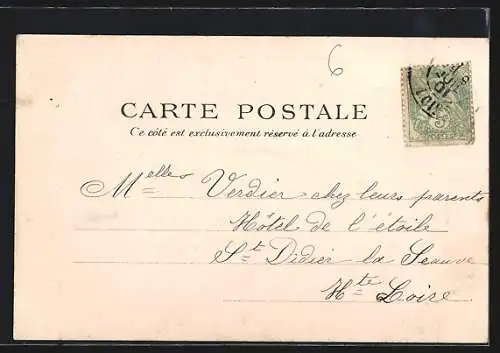 6
CARTE POSTALE
Ce côté est exclusivement réservé à l'adresse
Melles Verdier chez leurs parents
Hôtel de l'étoile
St Didier la Seauve
Hte Loire